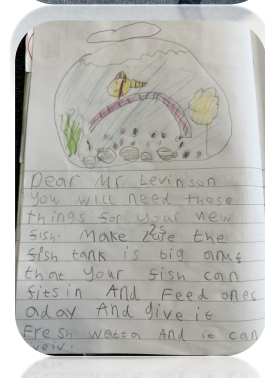 Dear Mr Levinson
you will need these
things for your new
fish. Make Zure the
fish tank is big anuf
that your fish can
fits in And Feed ones
aday And give it
Fresh watta And it can